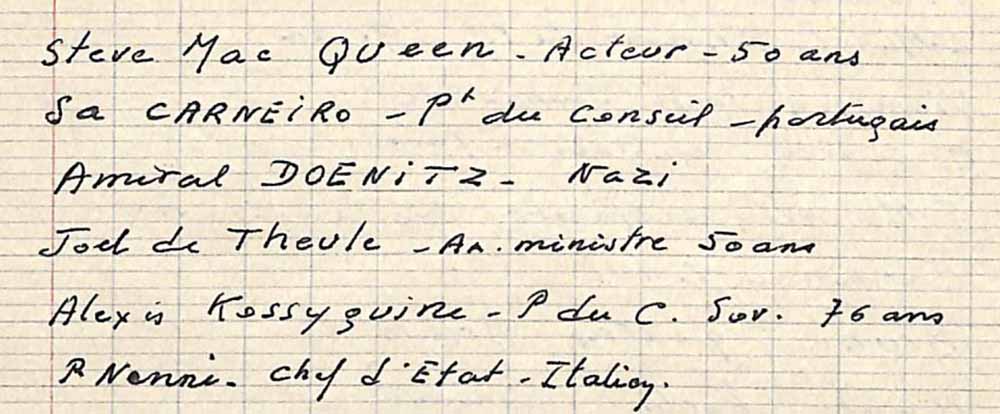 Steve Mac QUeen - Acteur - 50 ans
Sa CARNEiRO - Pt du Conseil - portugais
Amiral DOENiTZ - Nazi
Joel de Theule - An. ministre 50 ans
Alexis Kossyguine - P du C. Sov. 76 ans
P Nenni - chef d'Etat - Italien.